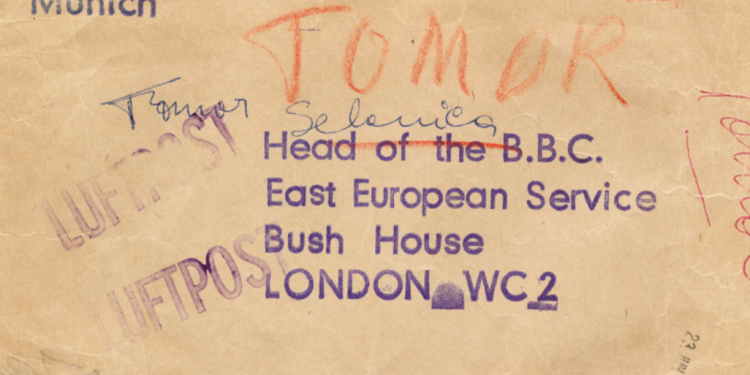 Munich
TOMOR
Tomor Selenica
Head of the B.B.C.
East European Service
Bush House
LONDON WC2
LUFTPOST
LUFTPOST